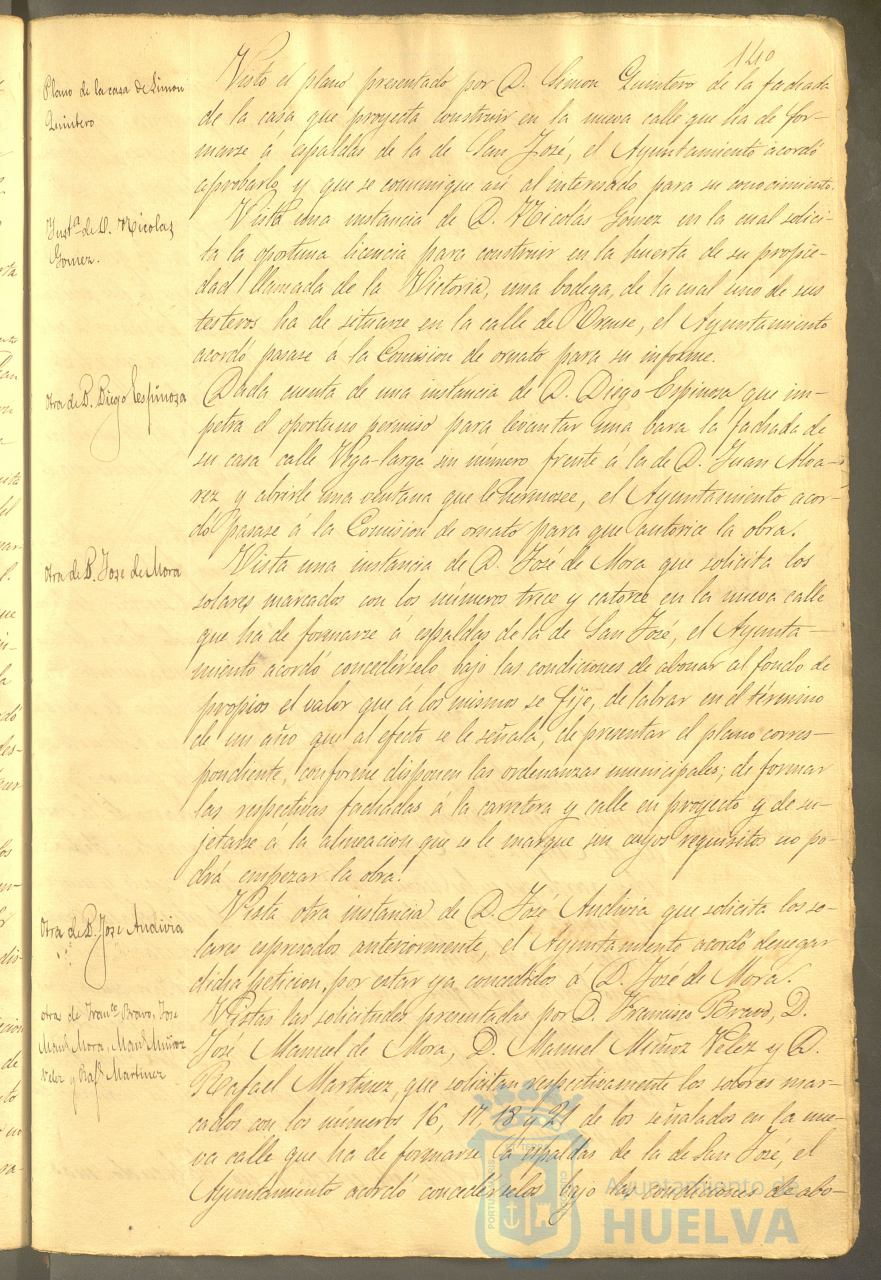 140
Plano de la casa de Simon
Quintero
Visto el plano presentado por D. Simon Quintero de la fachada
de la casa que proyecta construir en la nueva calle que ha de for-
marse a espaldas de la de San José, el Ayuntamiento acordó
aprobarlo y que se comunique asi al interesado para su conocimiento.
Inst.ª de D. Nicolas
Gomez.
Vista una instancia de D. Nicolás Gomez en la cual solici-
ta la oportuna licencia para construir en la huerta de su propie-
dad llamada de la Victoria, una bodega, de la cual uno de sus
testeros ha de situarse en la calle de Orense, el Ayuntamiento
acordó pasase á la Comision de ornato para su informe.
Otra de D. Diego Espinoza
Dada cuenta de una instancia de D. Diego Espinoza que im-
petra el oportuno permiso para levantar una bara la fachada de
su casa calle Vega-larga sin número frente a la de D. Juan Alva-
rez y abrirle una ventana que le hermosee, el Ayuntamiento acor-
dó pasase á la Comision de ornato para que autorice la obra.
Otra de D. Jose de Mora
Vista una instancia de D. José de Mora que solicita los
solares marcados con los números trece y catorce en la nueva calle
que ha de formarse á espaldas de la de San José, el Ayunta-
miento acordó concedérselo bajo las condiciones de abonar al fondo de
propios el valor que á los mismos se fije, de labrar en el término
de un año que al efecto se le señala, de presentar el plano corres-
pondiente, conforme disponen las ordenanzas municipales; de formar
las respectivas fachadas á la carretera y calle en proyecto y de su-
jetarse á la alineacion que se le marque sin cuyos requisitos no po-
drá empezar la obra.
Otra de D. Jose Andivia
Vista otra instancia de D. José Andivia que solicita los so-
lares espresados anteriormente, el Ayuntamiento acordó denegar
dicha peticion, por estar ya concedidos á D. José de Mora.
otras de Franco Bravo, Jose
Manl Mora, Manl Muñoz
Velez y Rafl Martinez
Vistas las solicitudes presentadas por D. Francisco Bravo, D.
José Manuel de Mora, D. Manuel Muñoz Velez y D.
Rafael Martinez, que solicitan respectivamente los solares mar-
cados con los números 16, 17, 18 y 21 de los señalados en la nue-
va calle que ha de formarse á espaldas de la de San José, el
Ayuntamiento acordó concedérselos bajo las condiciones de abo-
Ayuntamiento de
HUELVA